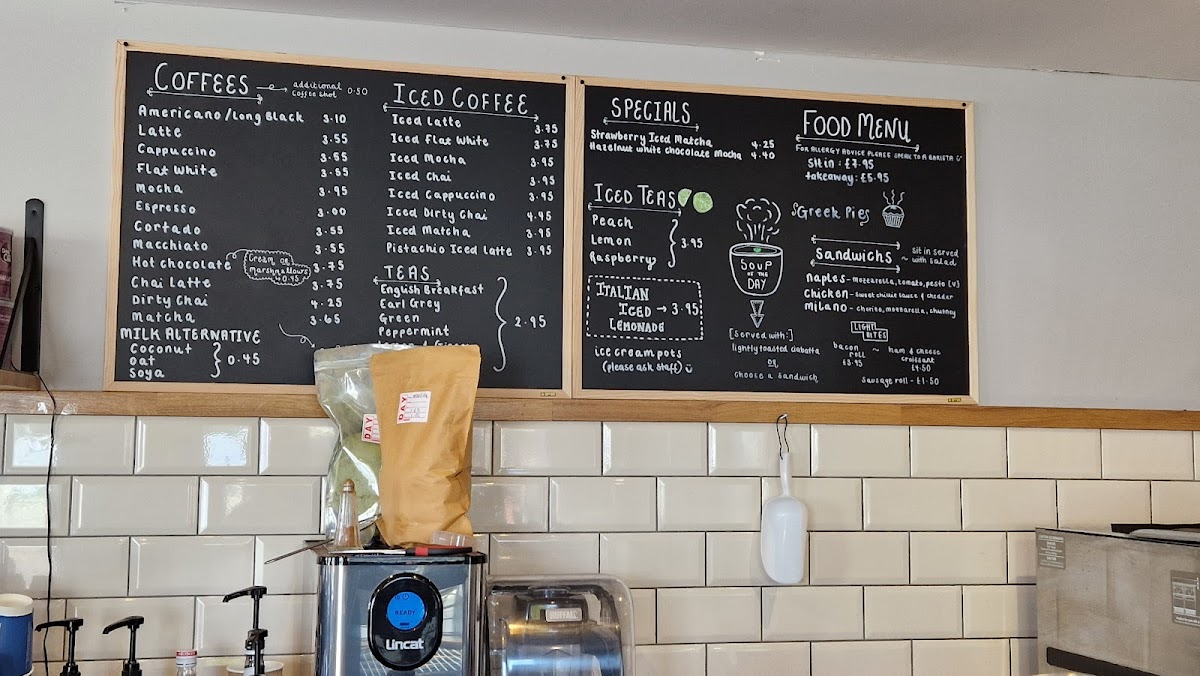 COFFEES
additional
coffee shot 0.50
Americano/Long Black 3.10
Latte 3.55
Cappuccino 3.55
Flat White 3.55
Mocha 3.95
Espresso 3.00
Cortado 3.55
Macchiato 3.55
Hot chocolate 3.75
Cream or
marshmallows
0.45
Chai Latte 3.75
Dirty Chai 4.25
Matcha 3.65
MILK ALTERNATIVE
Coconut
Oat 0.45
Soya
ICED COFFEE
Iced Latte 3.75
Iced Flat White 3.75
Iced Mocha 3.95
Iced Chai 3.95
Iced Cappuccino 3.95
Iced Dirty Chai 4.45
Iced Matcha 3.95
Pistachio Iced Latte 3.95
TEAS
English Breakfast
Earl Grey
Green 2.95
Peppermint
SPECIALS
Strawberry Iced Matcha 4.25
Hazelnut white chocolate mocha 4.40
ICED TEAS
Peach
Lemon 3.95
Raspberry
ITALIAN
ICED → 3.95
LEMONADE
ice cream pots
(please ask staff)
SOUP
OF THE
DAY
[served with:]
lightly toasted ciabatta
OR
choose a sandwich
FOOD MENU
FOR ALLERGY ADVICE PLEASE SPEAK TO A BARISTA
Sit in : £7.95
takeaway: £5.95
Greek Pies
Sandwichs
~ sit in served
with salad
naples - mozzarella, tomato, pesto (v)
chicken - sweet chillie sauce & cheddar
milano - chorizo, mozzarella, chutney
LIGHT
BITES
bacon
roll
£3.95
~
ham & cheese
croissant
£4.50
Sausage roll - £1.50
DAY
DAY
READY
Lincat
BUFFALO